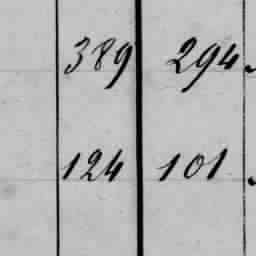 389 294
124 101